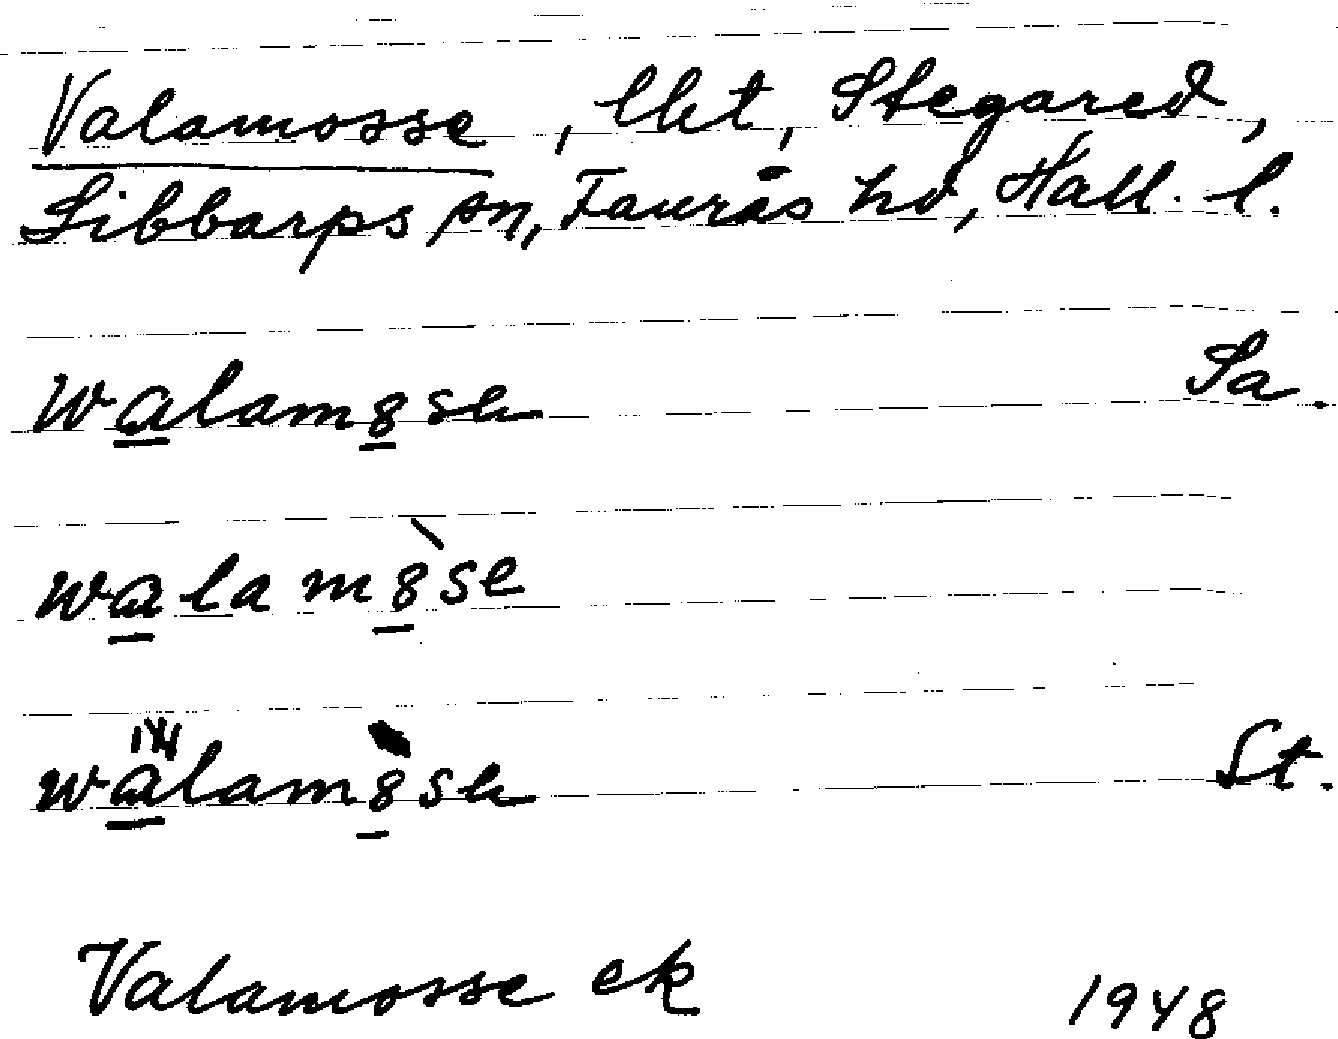 Valamosse, lht, Stegared,
Sibbarps sn, Faurås hd, Hall. l.
walam8se Sa.
walam8̀se
walam8se St.
Valamosse ek 1948